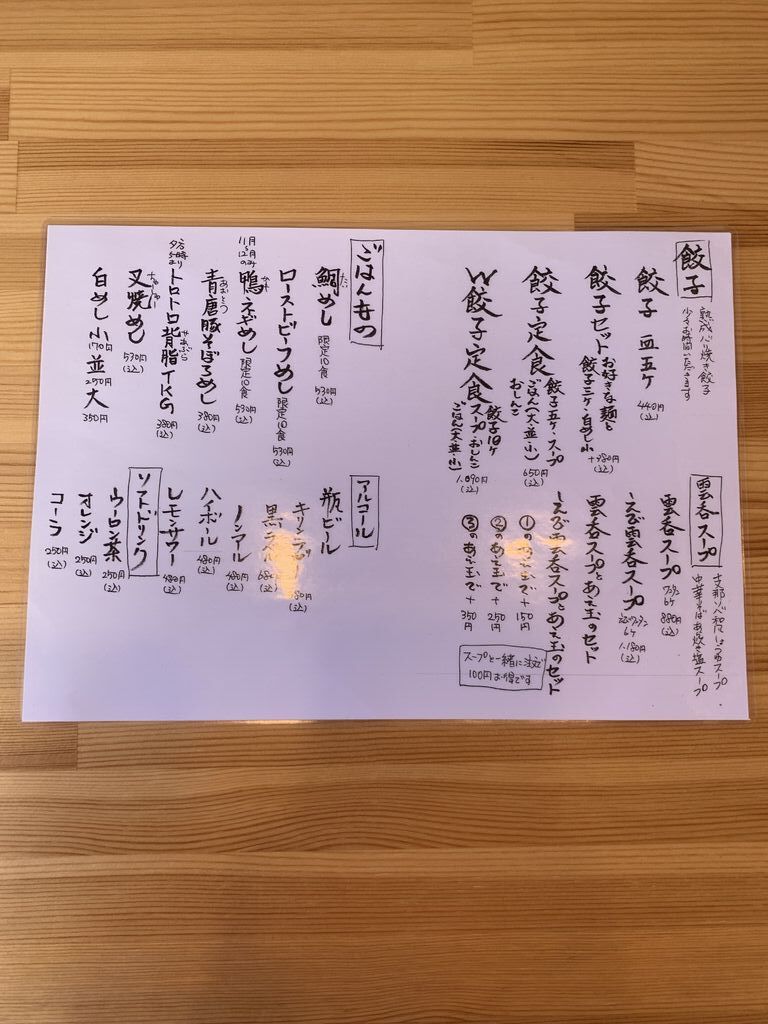 餃子
熟成パリ焼き餃子
少々お時間いただきます
餃子 一皿五ケ 440円(込)
餃子セット お好きな麺と
餃子三ケ・白めし小 +380円(込)
餃子定食 餃子五ケ・スープ
ごはん(大・並・小)
おしんこ 650円(込)
W餃子定食 餃子10ケ
スープ・おしんこ
ごはん(大・並・小) 1.090円(込)
雲呑スープ
支那ソバ 和風しょうゆスープ
中華そば あっさり塩スープ
雲呑スープ ワンタン6ケ 880円(込)
えび雲呑スープ えびワンタン6ケ 1.180円(込)
雲呑スープとあえ玉のセット
えび雲呑スープとあえ玉のセット
①のあえ玉で+150円
②のあえ玉で+250円
③のあえ玉で+350円
スープと一緒に注文で
100円お得です
ごはんもの
鯛めし たい 限定10食 530円(込)
ローストビーフめし 限定10食 530円(込)
11月~12月のみ 鴨ネギめし かも 限定10食 530円(込)
青唐豚そぼろめし あおとう 380円(込)
夕方5時より トロトロ背脂TKG せあぶら 380円(込)
叉焼めし ちゃーしゅー 530円(込)
白めし 小170円 並250円 大350円
アルコール
瓶ビール
キリンラガー 680円(込)
黒ラベル 680円(込)
ノンアル 480円(込)
ハイボール 480円(込)
レモンサワー 480円(込)
ソフトドリンク
ウーロン茶 250円(込)
オレンジ 250円(込)
コーラ 250円(込)